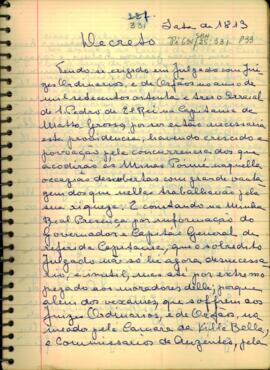 331
Data de 1813
Decreto
P33
Tendo-se erigido em Julgado com Jui
zes Ordinarios, e de Orfãos no anno de
mil setecentos oitenta e tres o Arraial
de S. Pedro de El Rei, na Capitania de
Matto Grosso, por ser então necessaria
esta providencia, havendo crescido a
povoação pela concurrencia dos que
acodirão ás Minas Poiné naquella
occazião descobertas com grande vanta
gem dos que nellas trabalhavão pela
sua riqueza. E constando na Minha
Real Prezença por informação do
Governador e Capitão General da
referida Capitania, que o sobredito
Julgado não só he agora desneces
sario, e inutil, mas até por extremo
pezado aos moradores delle; porque
alem dos vexames, que soffrem dos
Juizes Ordinarios, e de Orfãos, no
meado pela Camara de Villa Bella,
e Commissarios de Auzentes, pela